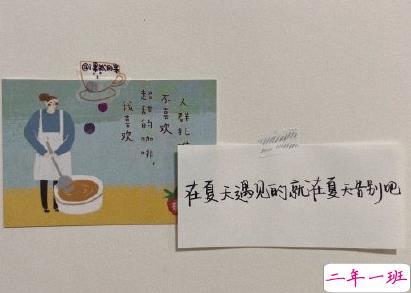 人群扎
不喜欢
超甜的咖啡，
喜欢
在夏天遇见的就在夏天告别吧
二年一班